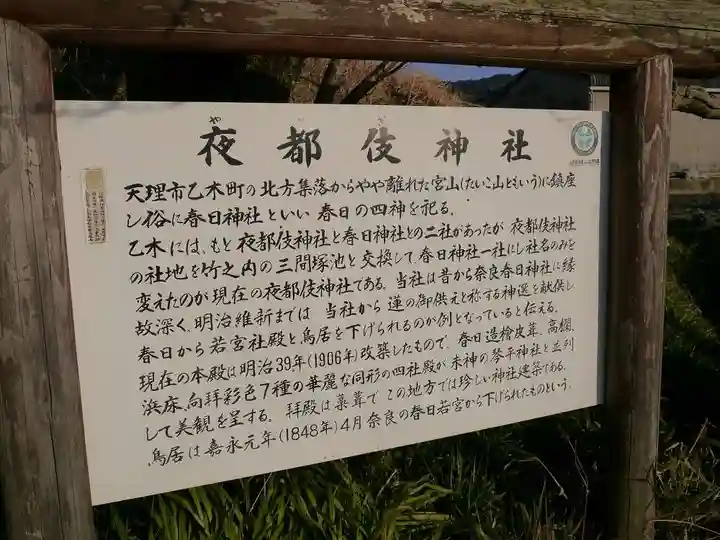 夜都伎神社
や ぎ
天理市乙木町の北方集落からやや離れた宮山(たいこ山ともいう)に鎮座
し俗に春日神社といい 春日の四神を祀る。
乙木には、もと夜都伎神社と春日神社との二社があったが 夜都伎神社
の社地を竹之内の三間塚池と交換して、春日神社一社にし社名のみを
変えたのが現在の夜都伎神社である。当社は昔から奈良春日神社に縁
故深く、明治維新までは 当社から蓮の御供えと称する神選を献供し
春日から若宮社殿と鳥居を下げられるのが例となっていると伝える。
現在の本殿は明治39年(1906年)改築したもので、春日造檜皮葺、高欄、
浜床、向拝彩色7種の華麗な同形の四社殿が 末神の琴平神社と並列
して美観を呈する。 拝殿は藁葺で この地方では珍しい神社建築である。
鳥居は嘉永元年(1848年)4月奈良の春日若宮から下げられたものという。